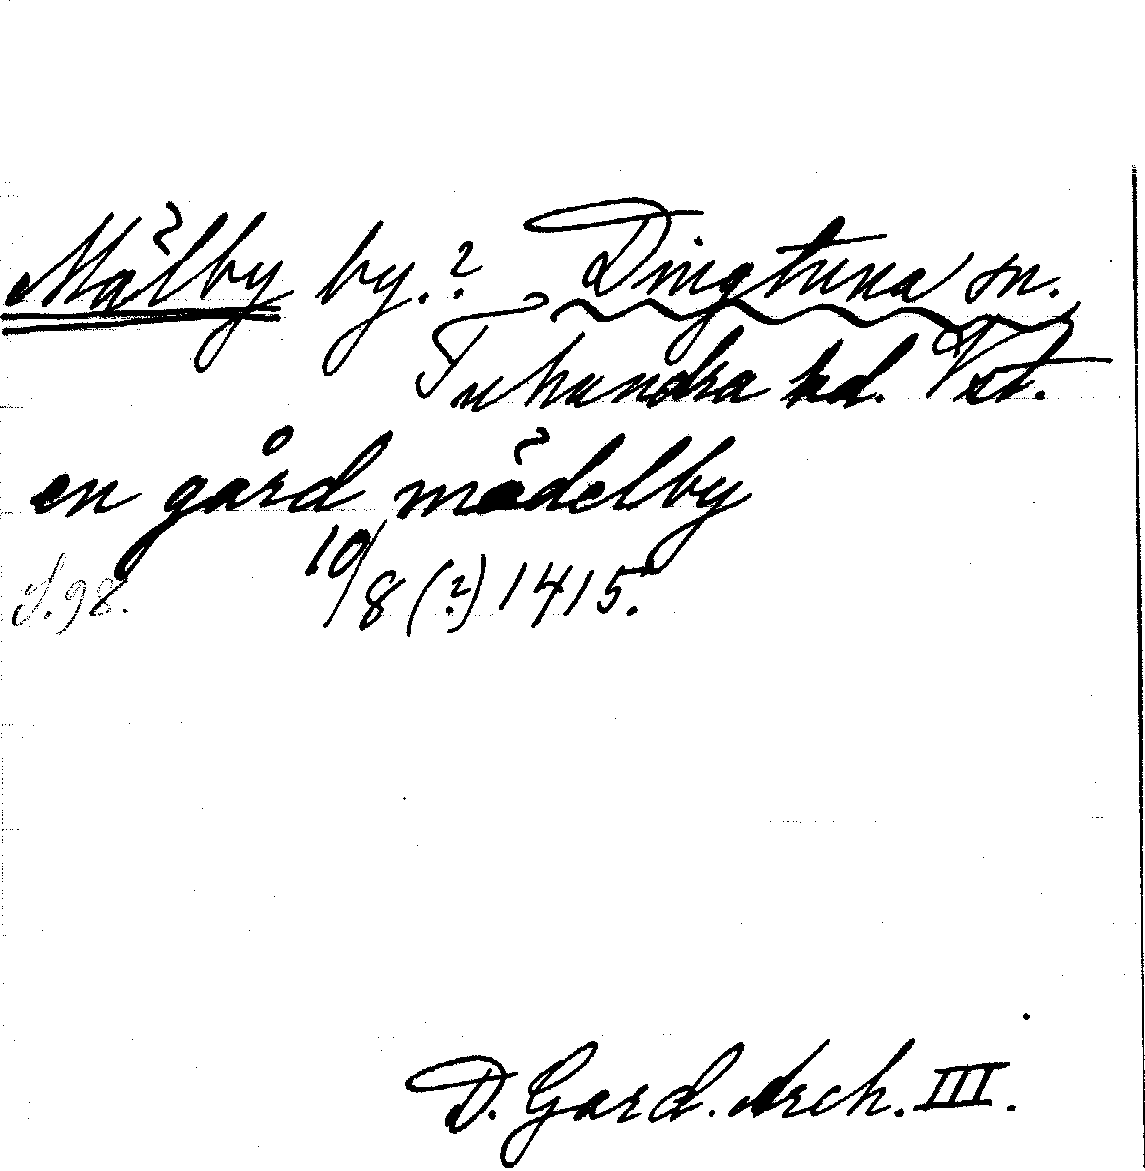 Mälby by.? Dingtuna sn.
Tuhundra hd. Vstl.
en gård mädelby
S. 98. 10/8 (?) 1415.
D. Gard. Arch. III.